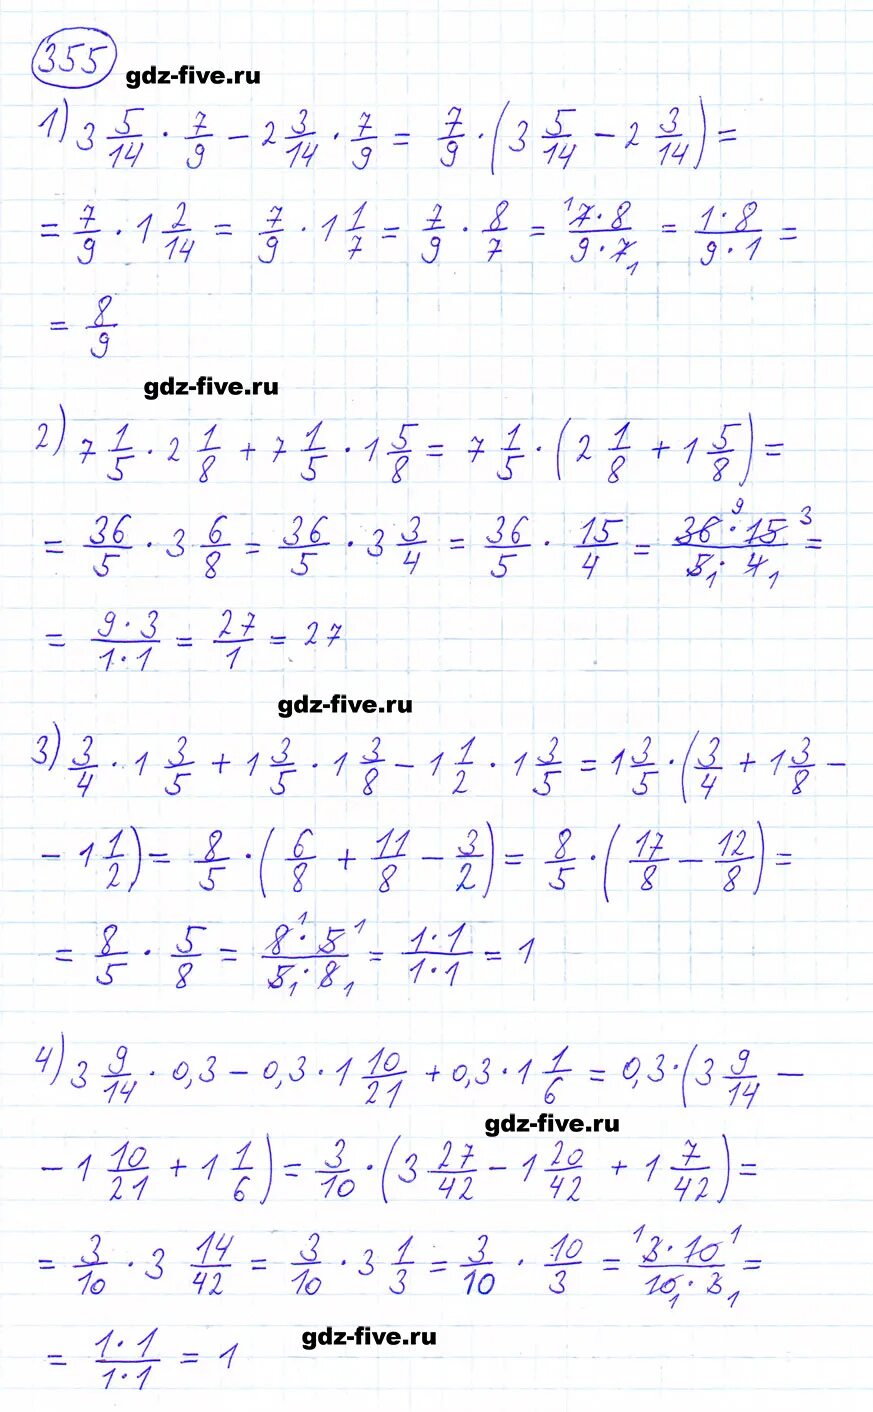 355
gdz-five.ru
1) 3 5/14 · 7/9 − 2 3/14 · 7/9 = 7/9 · (3 5/14 − 2 3/14) =
= 7/9 · 1 2/14 = 7/9 · 1 1/7 = 7/9 · 8/7 = 1 7·8/9·7 1 = 1·8/9·1 =
= 8/9
gdz-five.ru
2) 7 1/5 · 2 1/8 + 7 1/5 · 1 5/8 = 7 1/5 · (2 1/8 + 1 5/8) =
= 36/5 · 3 6/8 = 36/5 · 3 3/4 = 36/5 · 15/4 = 36 9 · 15 3/5 1 · 4 1 =
= 9·3/1·1 = 27/1 = 27
gdz-five.ru
3) 3/4 · 1 3/5 + 1 3/5 · 1 3/8 − 1 1/2 · 1 3/5 = 1 3/5 · (3/4 + 1 3/8 −
− 1 1/2) = 8/5 · (6/8 + 11/8 − 3/2) = 8/5 · (17/8 − 12/8) =
= 8/5 · 5/8 = 8 1 · 5 1/5 1 · 8 1 = 1·1/1·1 = 1
4) 3 9/14 · 0,3 − 0,3 · 1 10/21 + 0,3 · 1 1/6 = 0,3 · (3 9/14 −
gdz-five.ru
− 1 10/21 + 1 1/6) = 3/10 · (3 27/42 − 1 20/42 + 1 7/42) =
= 3/10 · 3 14/42 = 3/10 · 3 1/3 = 3/10 · 10/3 = 1 3·10 1/10 1 · 3 1 =
= 1·1/1·1 = 1
gdz-five.ru